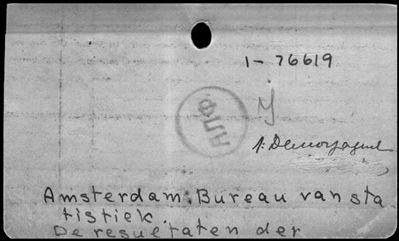 1-76619
АПФ.
У
1: Демография
Amsterdam: Bureau van sta
tistiek.
De resultaten der